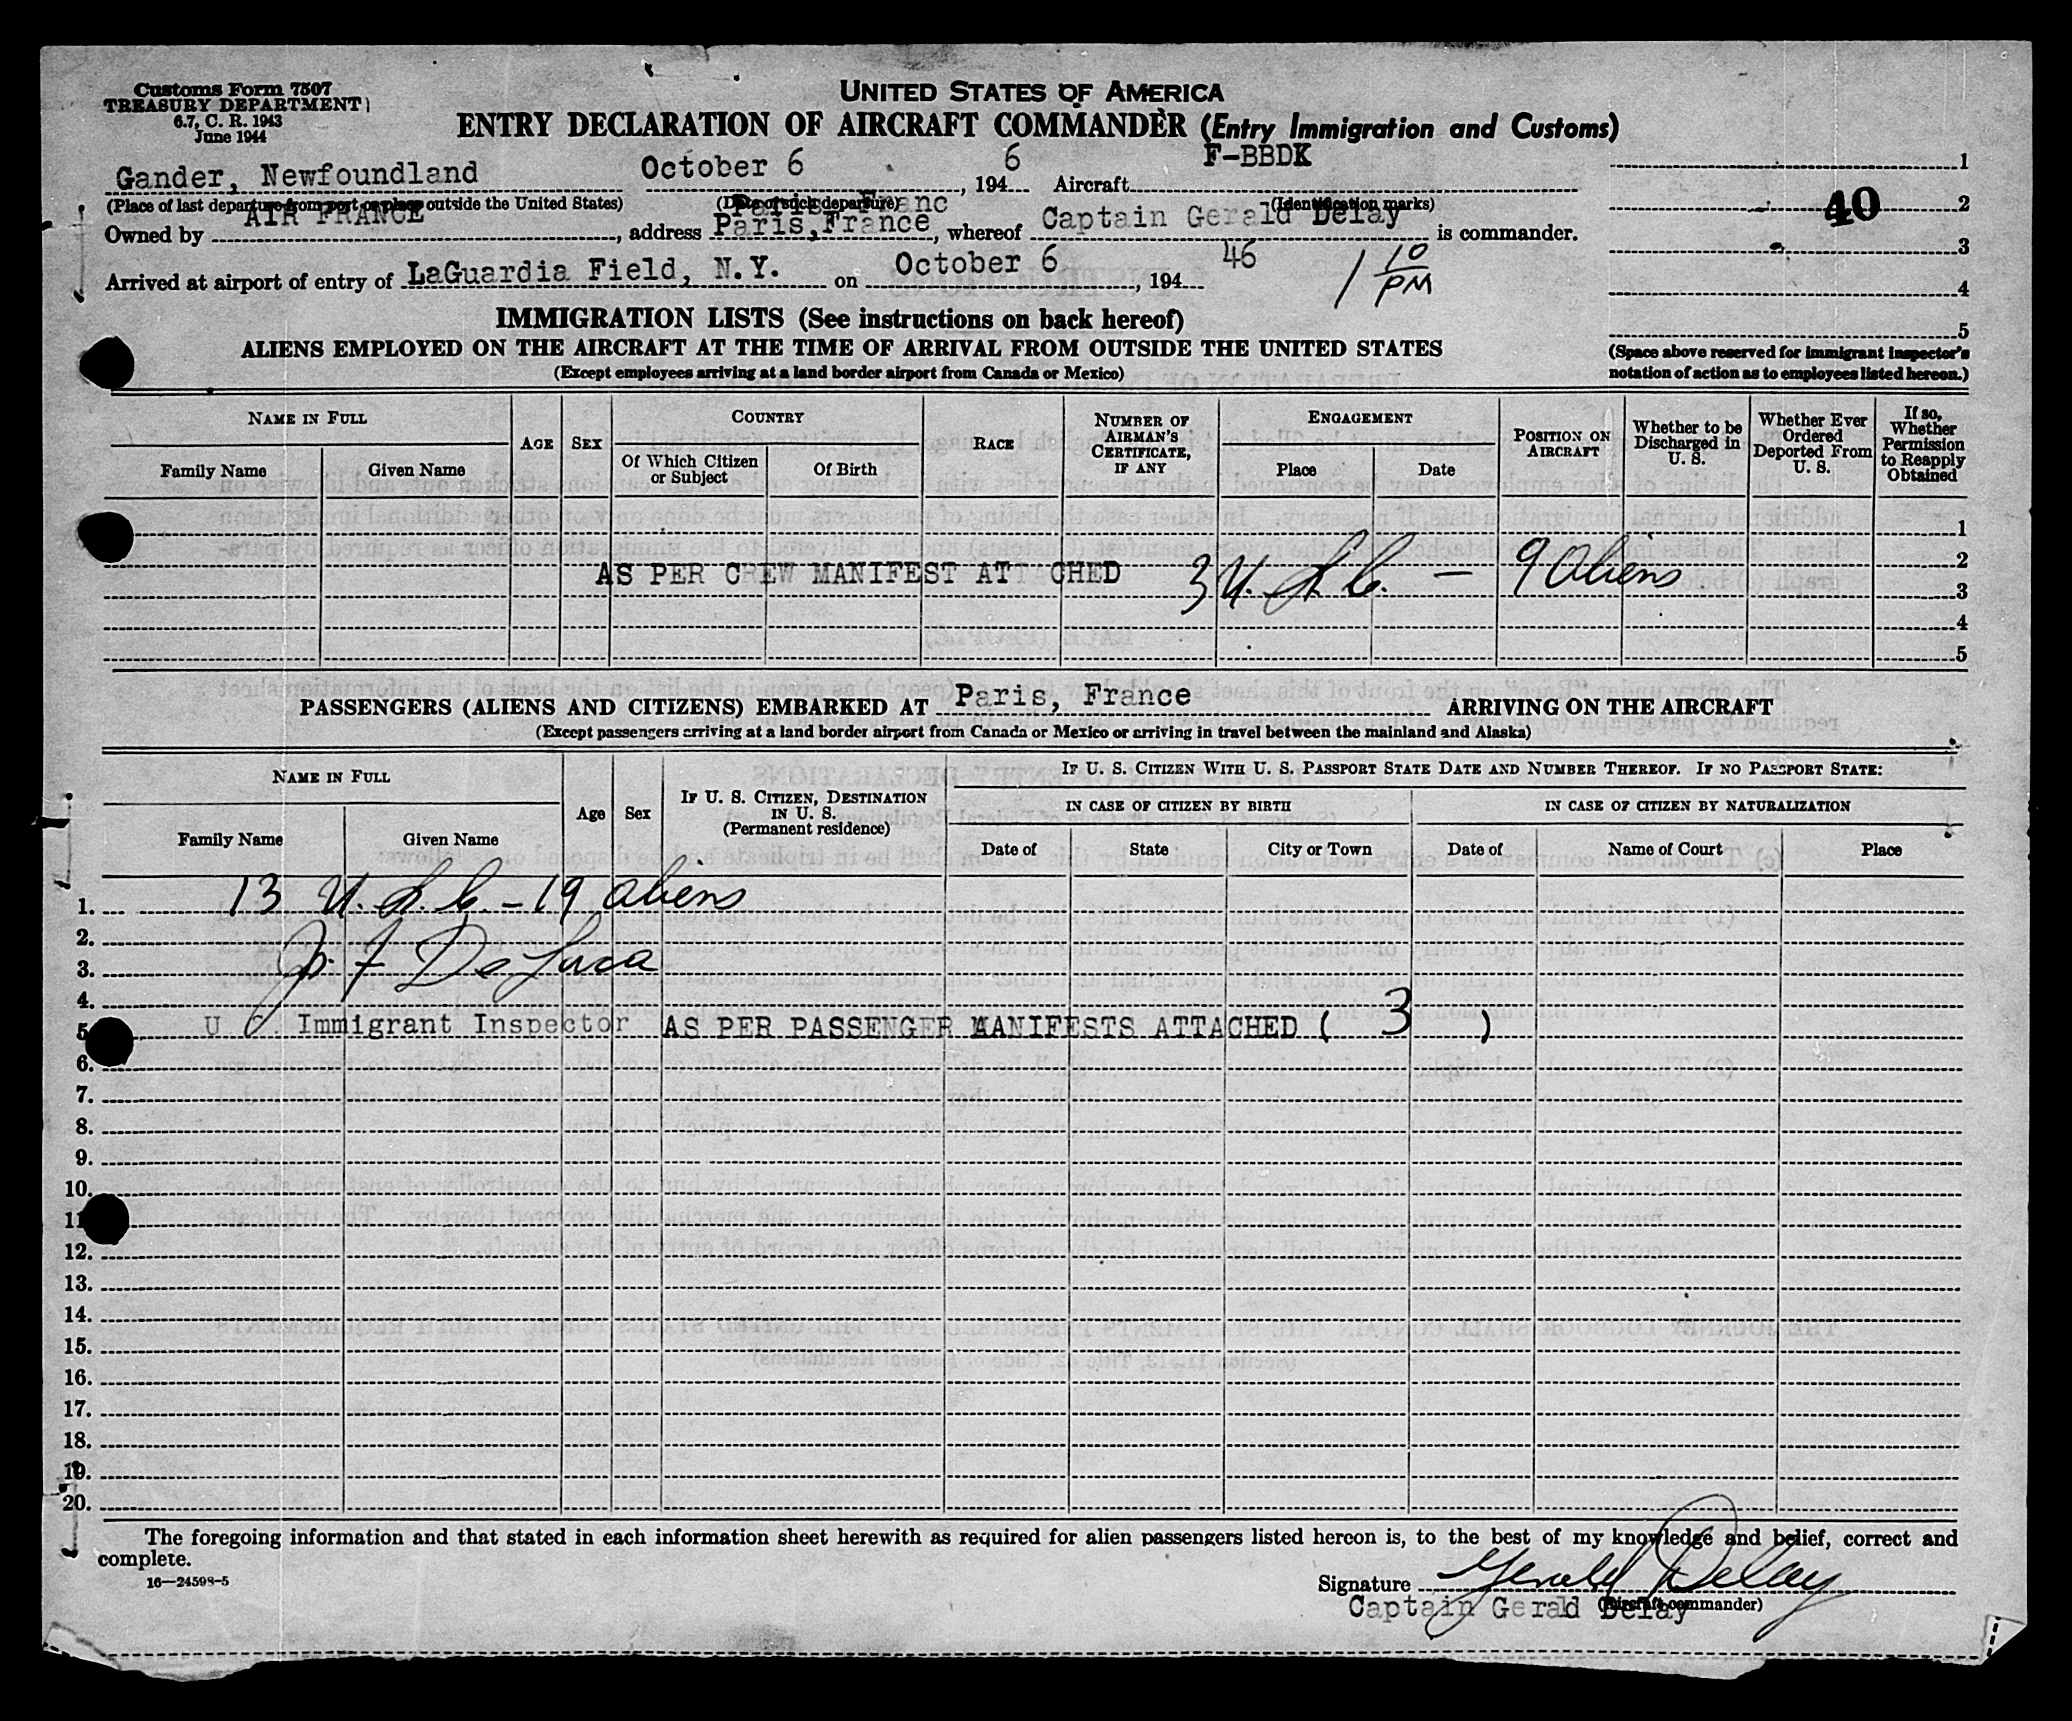 Customs Form 7507
TREASURY DEPARTMENT
6.7, C. R. 1943
June 1944
UNITED STATES OF AMERICA
ENTRY DECLARATION OF AIRCRAFT COMMANDER (Entry Immigration and Customs)
Gander, Newfoundland October 6 , 194 6 Aircraft F-BBDK
(Place of last departure from port or place outside the United States) (Date of such departure) (Identification marks)
Paris, Franc
Owned by AIR FRANCE , address Paris, France , whereof Captain Gerald Delay is commander.
Arrived at airport of entry of LaGuardia Field, N.Y. on October 6 , 194 46 1 10 PM
1
2
40
3
4
5
(Space above reserved for immigrant inspector's
notation of action as to employees listed hereon.)
IMMIGRATION LISTS (See instructions on back hereof)
ALIENS EMPLOYED ON THE AIRCRAFT AT THE TIME OF ARRIVAL FROM OUTSIDE THE UNITED STATES
(Except employees arriving at a land border airport from Canada or Mexico)
NAME IN FULL
Family Name Given Name
AGE SEX
COUNTRY
Of Which Citizen or Subject Of Birth
RACE
NUMBER OF AIRMAN'S CERTIFICATE, IF ANY
ENGAGEMENT
Place Date
POSITION ON AIRCRAFT
Whether to be Discharged in U. S.
Whether Ever Ordered Deported From U. S.
If so, Whether Permission to Reapply Obtained
1
2
AS PER CREW MANIFEST ATTACHED 3 U.S.C. — 9 Aliens
3
4
5
PASSENGERS (ALIENS AND CITIZENS) EMBARKED AT Paris, France ARRIVING ON THE AIRCRAFT
(Except passengers arriving at a land border airport from Canada or Mexico or arriving in travel between the mainland and Alaska)
NAME IN FULL
Family Name Given Name
Age Sex
IF U. S. CITIZEN, DESTINATION IN U. S. (Permanent residence)
IF U. S. CITIZEN WITH U. S. PASSPORT STATE DATE AND NUMBER THEREOF. IF NO PASSPORT STATE:
IN CASE OF CITIZEN BY BIRTH IN CASE OF CITIZEN BY NATURALIZATION
Date of State City or Town Date of Name of Court Place
1. 13 U.S.C. – 19 aliens
2.
3. De Luca
4.
5. U S. Immigrant Inspector AS PER PASSENGER MANIFESTS ATTACHED ( 3 )
6.
7.
8.
9.
10.
11
12.
13.
14.
15.
16.
17.
18.
19.
20.
The foregoing information and that stated in each information sheet herewith as required for alien passengers listed hereon is, to the best of my knowledge and belief, correct and
complete.
16—24598-5
Signature Gerald Delay
(Aircraft commander)
Captain Gerald Delay